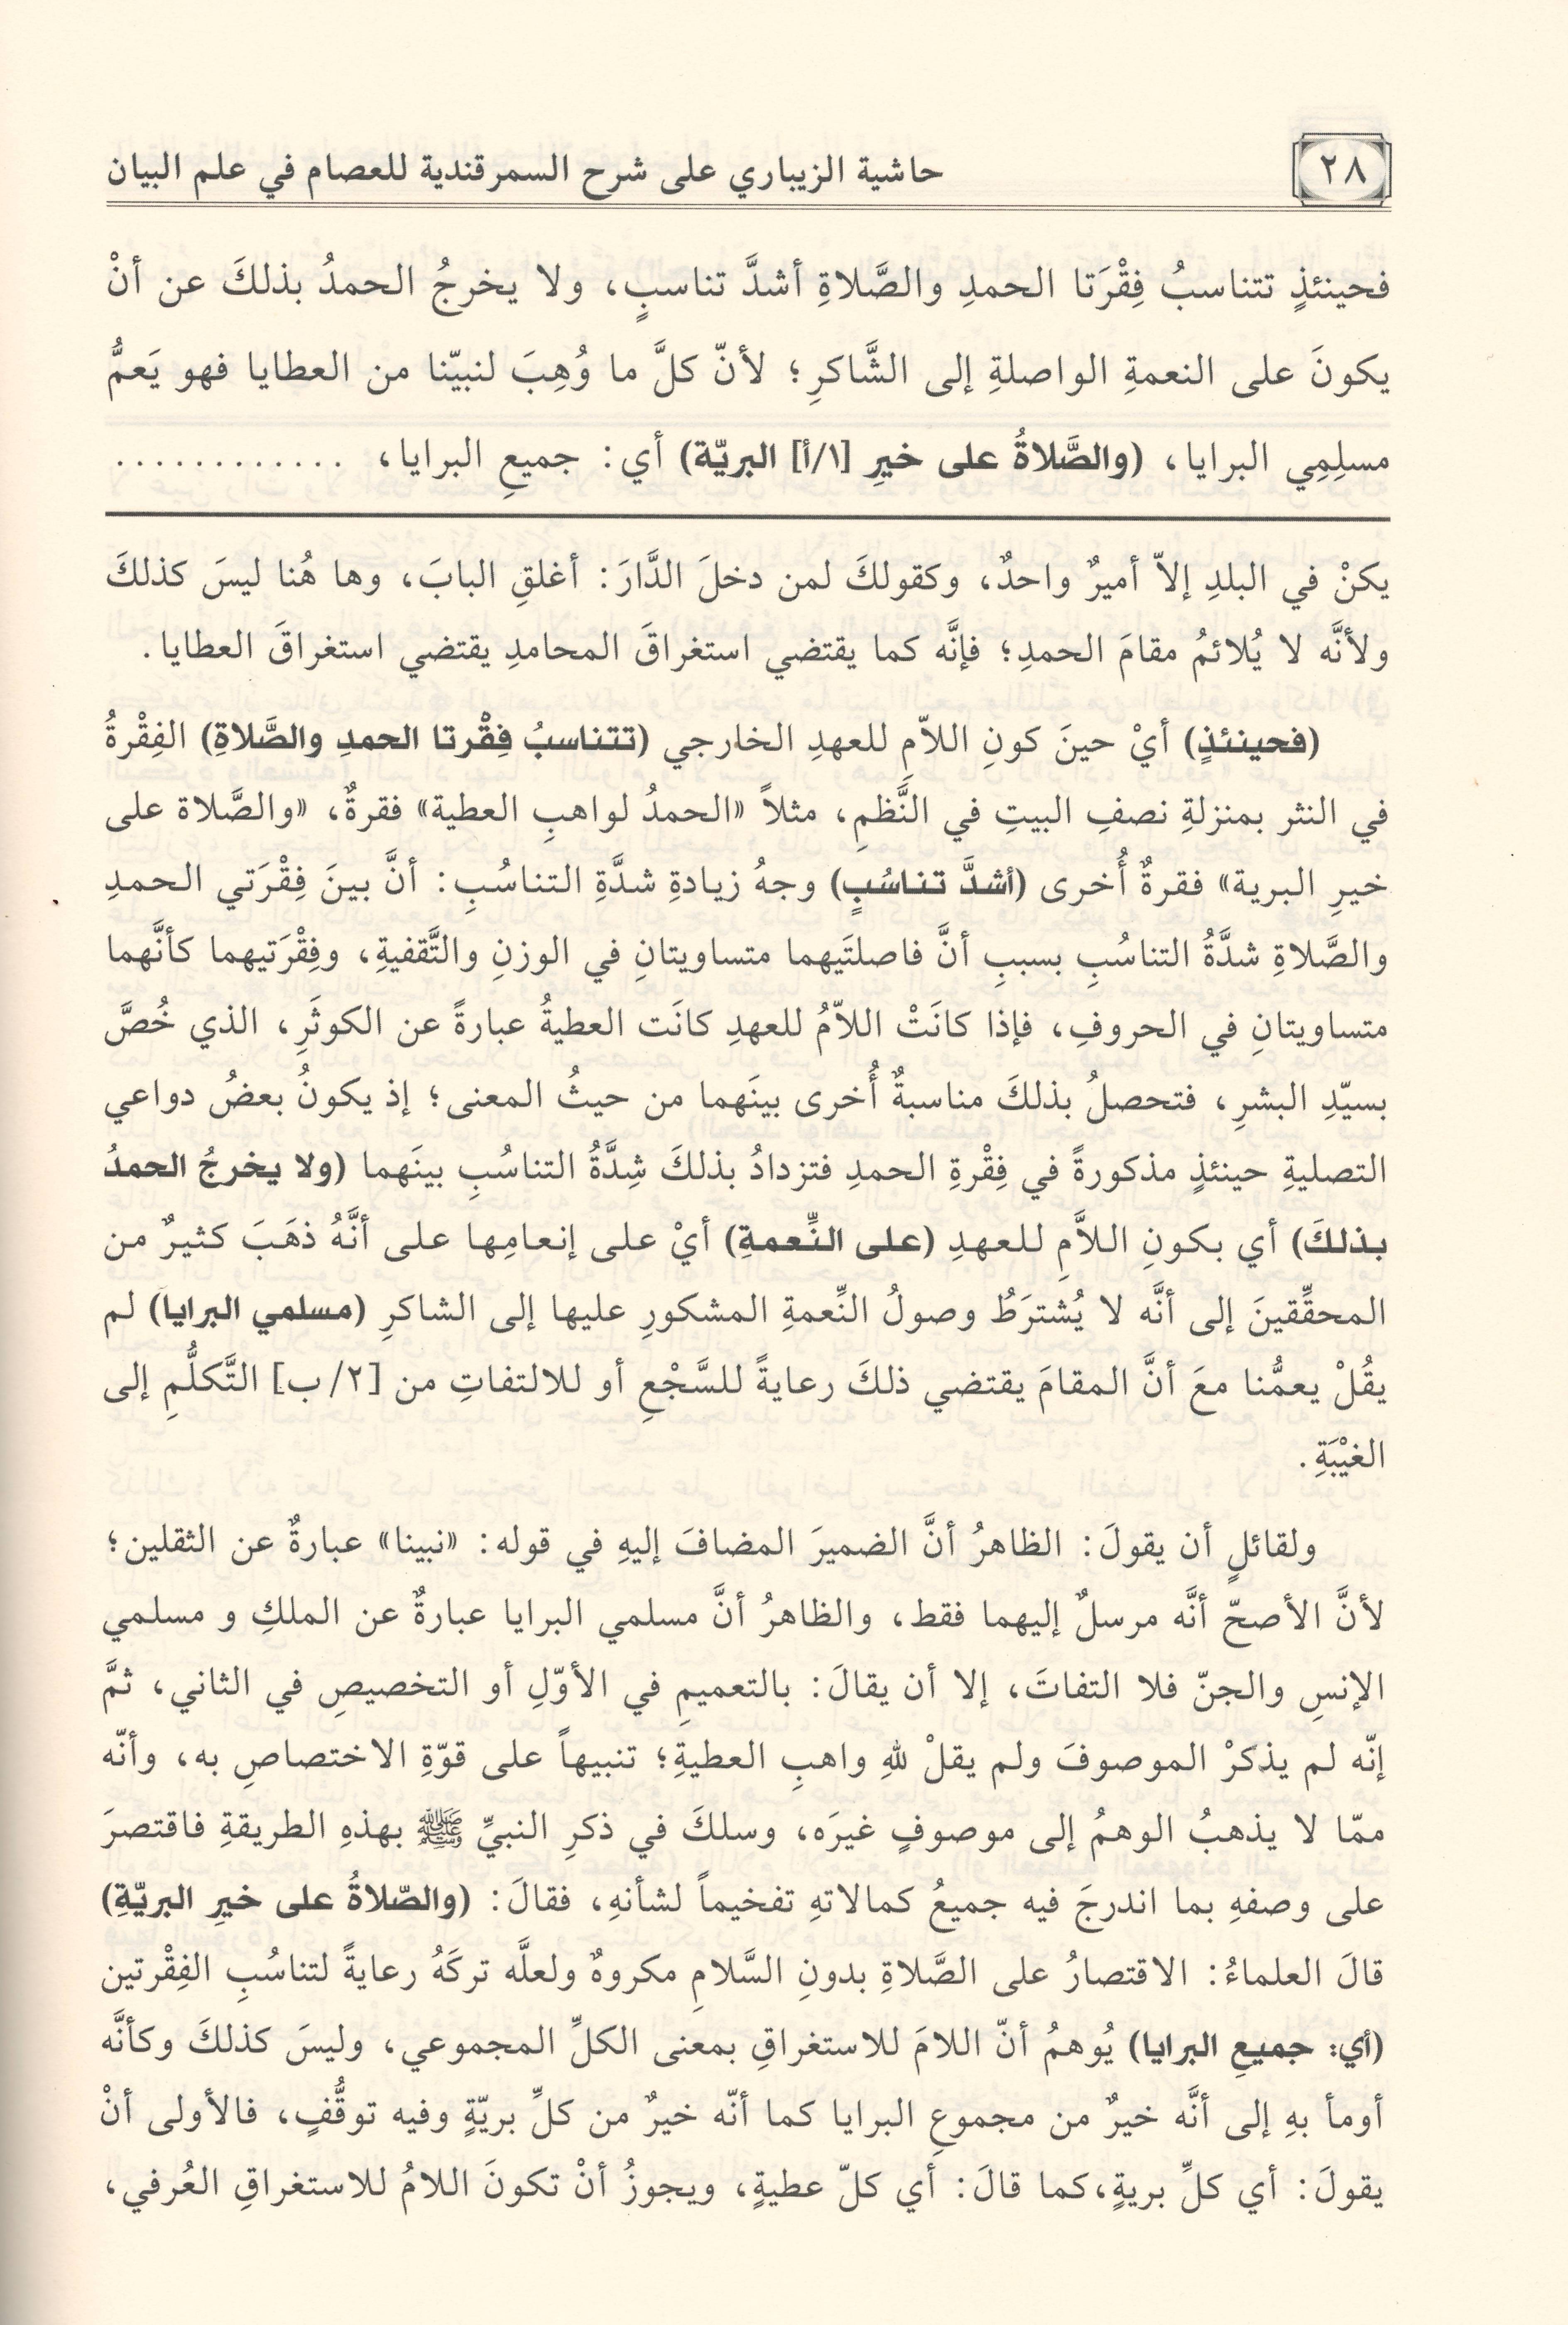 ٢٨
حاشية الزيباري على شرح السمرقندية للعصام في علم البيان
فحينئذٍ تتناسبُ فِقْرَتا الحمدِ والصَّلاةِ أشدَّ تناسبٍ، ولا يخرجُ الحمدُ بذلكَ عن أنْ
يكونَ على النعمةِ الواصلةِ إلى الشَّاكرِ؛ لأنّ كلَّ ما وُهِبَ لنبيّنا من العطايا فهو يَعمُّ
مسلِمِي البرايا، (والصَّلاةُ على خيرِ [١/أ] البريّة) أي: جميعِ البرايا، ............
يكنْ في البلدِ إلاّ أميرٌ واحدٌ، وكقولكَ لمن دخلَ الدَّارَ: أغلقِ البابَ، وها هُنا ليسَ كذلكَ
ولأنَّه لا يُلائمُ مقامَ الحمدِ؛ فإنَّه كما يقتضي استغراقَ المحامدِ يقتضي استغراقَ العطايا.
(فحينئذٍ) أيْ حينَ كونِ اللاّمِ للعهدِ الخارجي (تتناسبُ فِقْرتا الحمدِ والصَّلاةِ) الفِقْرةُ
في النثر بمنزلةِ نصفِ البيتِ في النَّظمِ، مثلاً «الحمدُ لواهبِ العطية» فقرةٌ، «والصَّلاة على
خيرِ البرية» فقرةٌ أُخرى (أشدَّ تناسُبٍ) وجهُ زيادةِ شدَّةِ التناسُبِ: أنَّ بينَ فِقْرَتي الحمدِ
والصَّلاةِ شدَّةُ التناسُبِ بسببِ أنَّ فاصلتَيهما متساويتانِ في الوزنِ والتَّقفيةِ، وفِقْرَتيهما كأنَّهما
متساويتانِ في الحروفِ، فإذا كانَتْ اللاّمُ للعهدِ كانَت العطيةُ عبارةً عن الكوثَرِ، الذي خُصَّ
بسيّدِ البشرِ، فتحصلُ بذلكَ مناسبةٌ أُخرى بينَهما من حيثُ المعنى؛ إذ يكونُ بعضُ دواعي
التصليةِ حينئذٍ مذكورةً في فِقْرةِ الحمدِ فتزدادُ بذلكَ شِدَّةُ التناسُبِ بينَهما (ولا يخرجُ الحمدُ
بذلكَ) أي بكونِ اللاَّمِ للعهدِ (على النِّعمةِ) أيْ على إنعامِها على أنَّهُ ذهَبَ كثيرٌ من
المحقِّقينَ إلى أنَّه لا يُشترَطُ وصولُ النِّعمةِ المشكورِ عليها إلى الشاكرِ (مسلمي البرايا) لم
يقُلْ يعمُّنا معَ أنَّ المقامَ يقتضي ذلكَ رعايةً للسَّجْعِ أو للالتفاتِ من [٢/ ب] التَّكلُّمِ إلى
الغيْبَةِ.
ولقائلٍ أن يقولَ: الظاهرُ أنَّ الضميرَ المضافَ إليهِ في قوله: «نبينا» عبارةٌ عن الثقلين؛
لأنَّ الأصحّ أنَّه مرسلٌ إليهما فقط، والظاهرُ أنَّ مسلمي البرايا عبارةٌ عن الملكِ و مسلمي
الإنسِ والجنّ فلا التفاتَ، إلا أن يقالَ: بالتعميمِ في الأوّلِ أو التخصيصِ في الثاني، ثمَّ
إنّه لم يذكرْ الموصوفَ ولم يقلْ للهِ واهبِ العطيةِ؛ تنبيهاً على قوّةِ الاختصاصِ به، وأنّه
ممّا لا يذهبُ الوهمُ إلى موصوفٍ غيرَه، وسلكَ في ذكرِ النبيِّ ﷺ بهذهِ الطريقةِ فاقتصرَ
على وصفهِ بما اندرجَ فيه جميعُ كمالاتهِ تفخيماً لشأنهِ، فقالَ: (والصّلاةُ على خيرِ البريّةِ)
قالَ العلماءُ: الاقتصارُ على الصَّلاةِ بدونِ السَّلامِ مكروهٌ ولعلَّه تركَهُ رعايةً لتناسُبِ الفِقْرتين
(أي: جميعِ البرايا) يُوهمُ أنّ اللامَ للاستغراقِ بمعنى الكلِّ المجموعي، وليسَ كذلكَ وكأنَّه
أومأ بهِ إلى أنَّه خيرٌ من مجموعِ البرايا كما أنّه خيرٌ من كلِّ بريّةٍ وفيه توقُّفٍ، فالأولى أنْ
يقولَ: أي كلِّ بريةٍ،كما قالَ: أي كلّ عطيةٍ، ويجوزُ أنْ تكونَ اللامُ للاستغراقِ العُرفي،